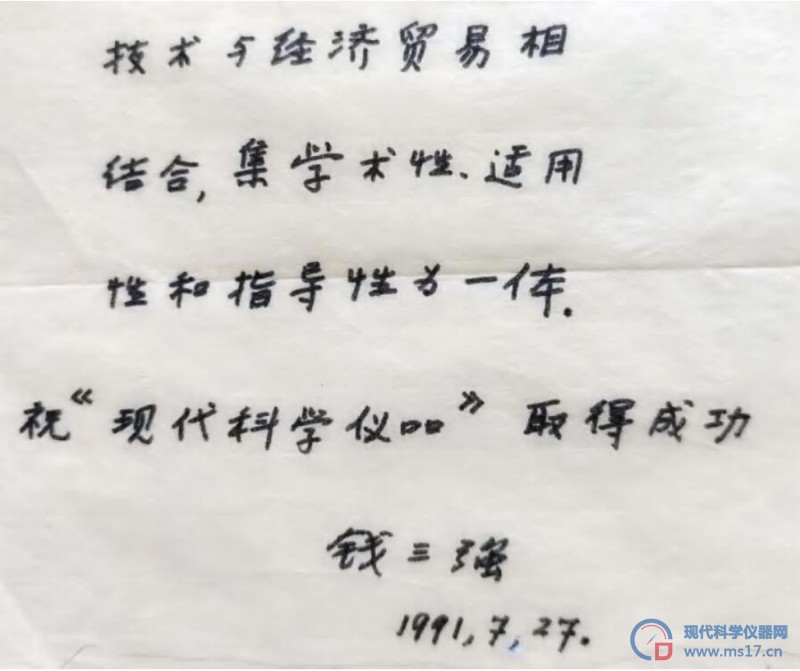 技术与经济贸易相
结合,集学术性、适用
性和指导性为一体.
祝《现代科学仪口口》取得成功
钱三强
1991,7,27.
现代科学仪器网
www.ms17.cn